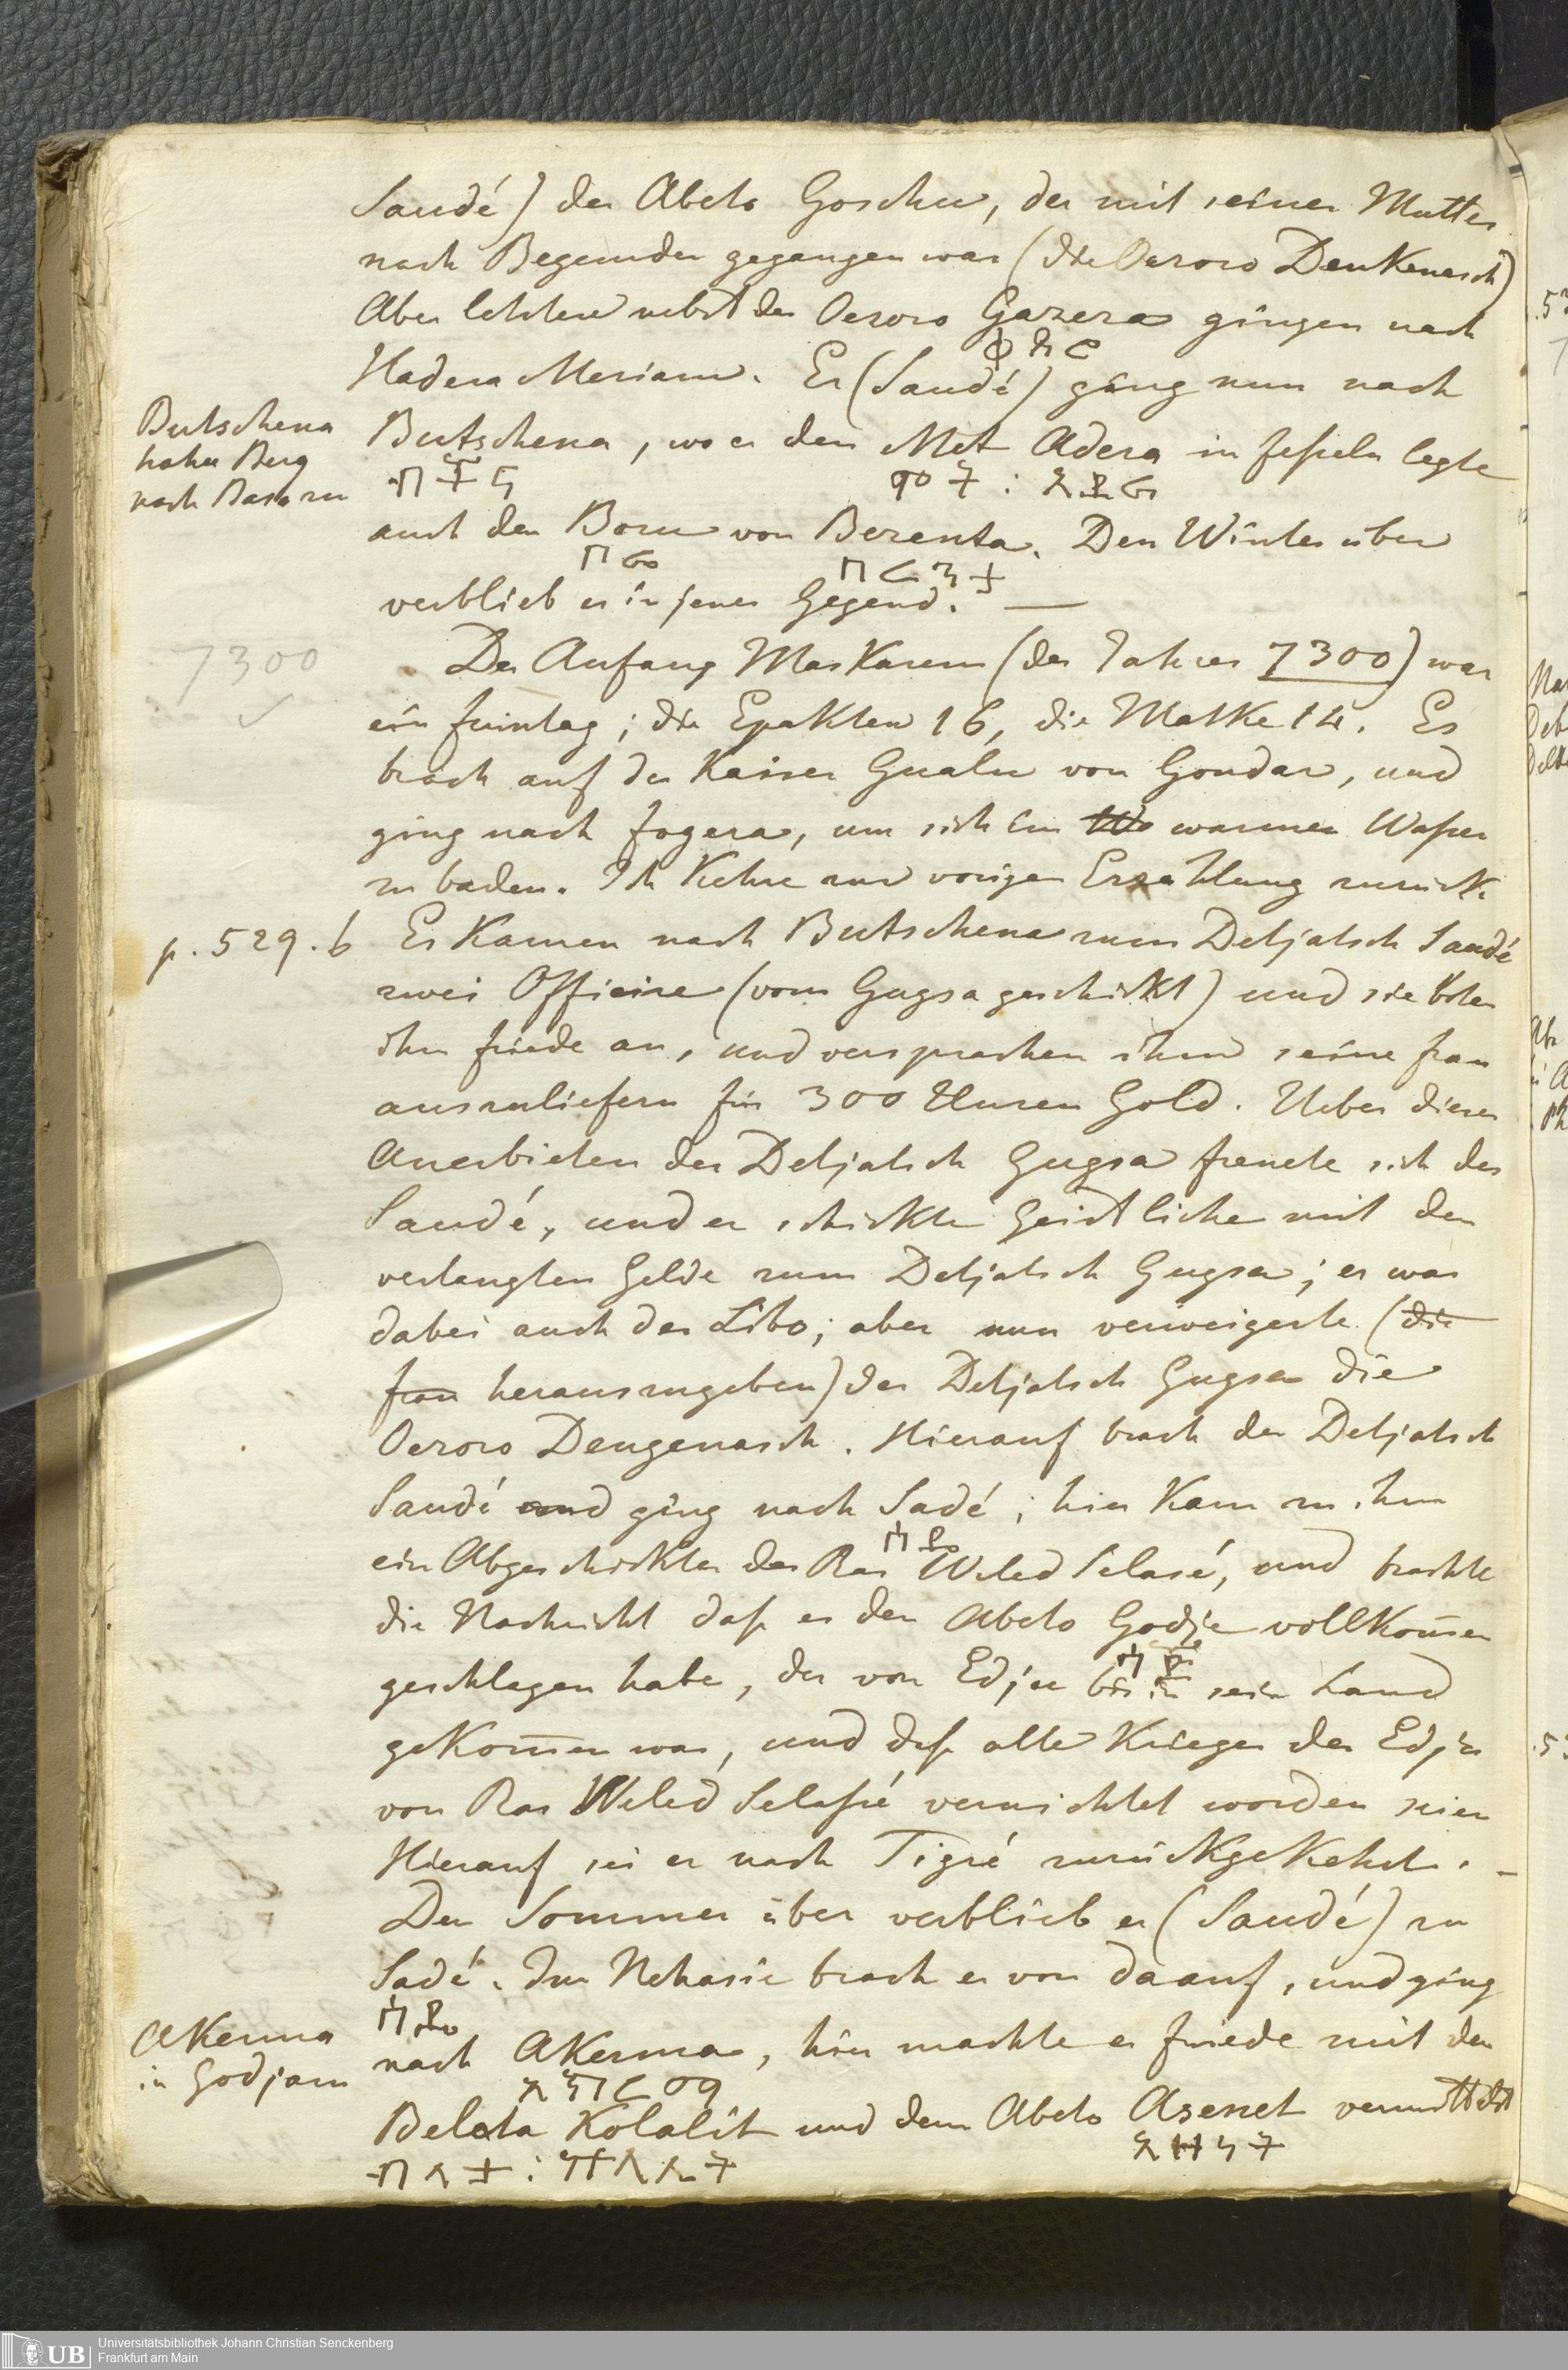 Saudé) der Abeto Goschu, der mit seiner Mutter
nach Begemder gegangen war (die Oeroro Denkenesch)
Aber letztere nebst der Oeroro Gazera gingen nach
Hadera Meriam. Er (Saudé) ging nun nach
Butschena
hoher Berg
nach Baso zu
Butschena, wo er den Met Adera in Fesseln legte
ቡቾና መት : አዴራ
auch den Boru von Berenta. Den Winter über
ቦሩ በረንታ
verblieb er in jener Gegend. —
7300
Der Anfang Maskarem (des Jahres 7300) war
ein Freintag; die Epakten 16, die Matke 14. Es
brach auf der Kaiser Gualu von Gondar, und
ging nach Fogera, um sich im warmen Wasser
zu baden. Ich kehre zur vorigen Erzählung zurück.
p. 529. b
Es kamen nach Butschena zum Detjatsch Saudé
zwei Officire (vom Gugsa geschickt) und sie boten
ihm Friede an, und versprachen ihm seine Frau
auszuliefern für 300 Unzen Gold. Ueber dieses
Anerbieten des Detjatsch Gugsa freuete sich der
Saudé, und er schickte Geistliche mit dem
verlangten Gelde zum Detjatsch Gugsa; es war
dabei auch der Libo; aber nun verweigerte (die
Frau herauszugeben) der Detjatsch Gugsa die
Oeroro Dengenasch. Hierauf brach der Detjatsch
Saudé und ging nach Sadé; hier kam zu ihm
ሣዴ
ein Abgeschickter des Ras Weled Selasé, und brachte
die Nachricht daß er den Abeto Godje vollkom̄en
geschlagen habe, der von Edju bis in sein Land
gekom̄en war, und daß alle Krieger der Edju
von Ras Weled Selassé vernichtet worden seien
Hierauf sei er nach Tigré zurückgekehrt. –
Den Sommer über verblieb er (Saudé) zu
Sadé. Im Nehasie brach er von da auf, und ging
ሣዴ
Akerma
in Godjam
nach Akerma, hier machte er Friede mit dem
አኸርማ
Belata Kolalit und dem Abeto Asenet vermittelst
አዘነት